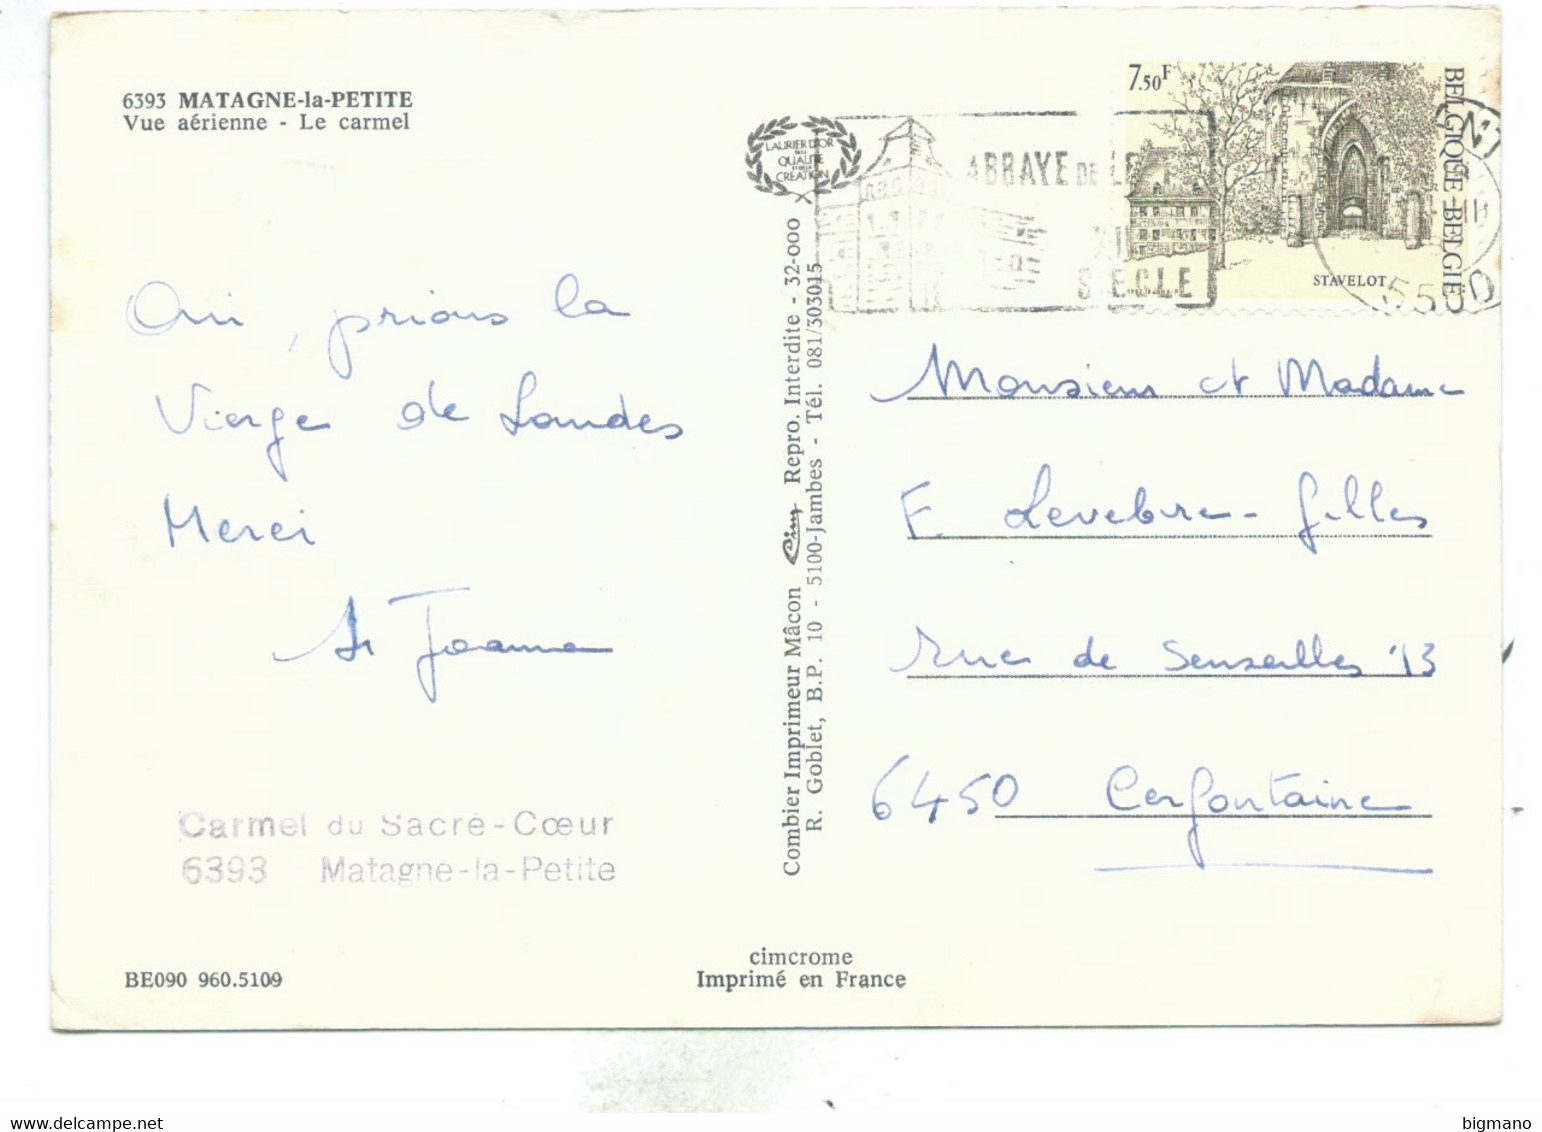 6393 MATAGNE-la-PETITE
Vue aérienne - Le carmel
Oui, prions la
Vierge de Lourdes
Merci
Sr Joanna
Carmel du Sacré-Cœur
6393 Matagne-la-Petite
BE090 960.5109
cimcrome
Imprimé en France
Combier Imprimeur Mâcon Cim Repro. Interdite - 32-000
R. Goblet, B.P. 10 - 5100-Jambes - Tél. 081/303015
LAURIER D'OR
DE LA
QUALITÉ
ET DE LA
CRÉATION
ABBAYE DE LE
XII
SIECLE
7.50F
BELGIQUE BELGIË
STAVELOT
5500
Monsieur et Madame
F. Levebvre-Gilles
rue de Senzeilles 13
6450 Cerfontaine
bigmano